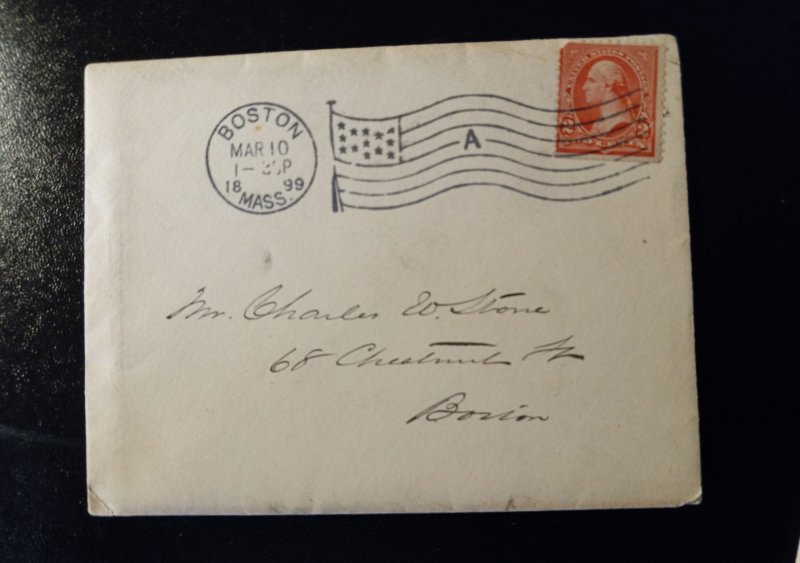 BOSTON
MAR 10
1-30P
18 99
MASS.
A
UNITED STATES POSTAGE
2 2
Mr. Charles W. Stone
68 Chestnut St
Boston